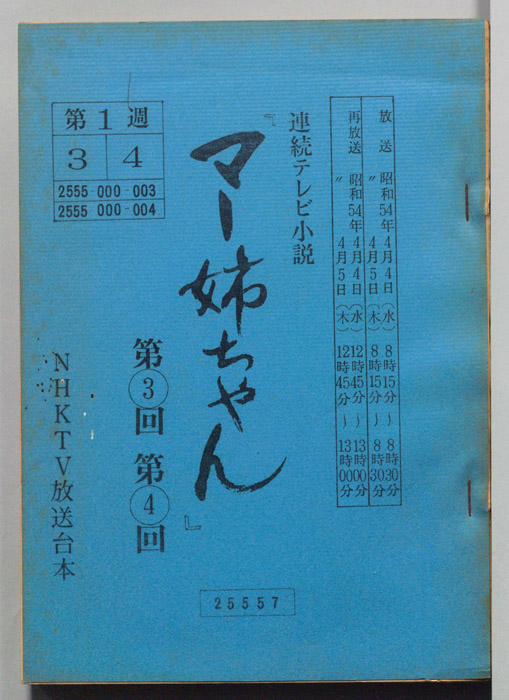 放送 昭和54年4月4日(水) 8時15分~8時30分
〃 4月5日(木) 8時15分~8時30分
再放送 昭和54年4月4日(水) 12時45分~13時00分
〃 4月5日(木) 12時45分~13時00分
連続テレビ小説
『マー姉ちゃん』
第③回 第④回
第1週
3 4
2555-000-003
2555-000-004
NHKTV放送台本
25557